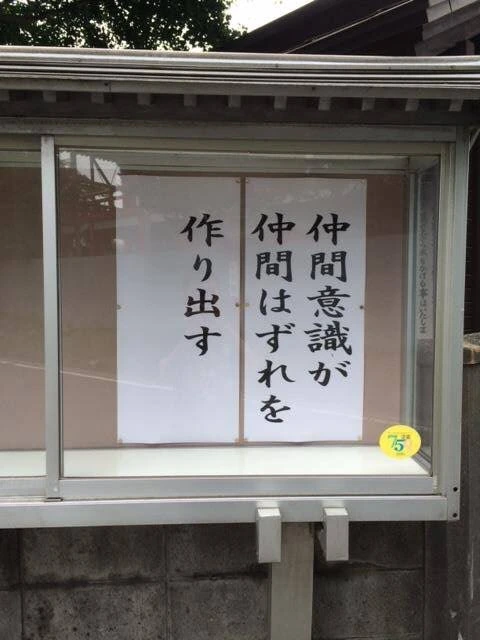 仲間意識が
仲間はずれを
作り出す
75